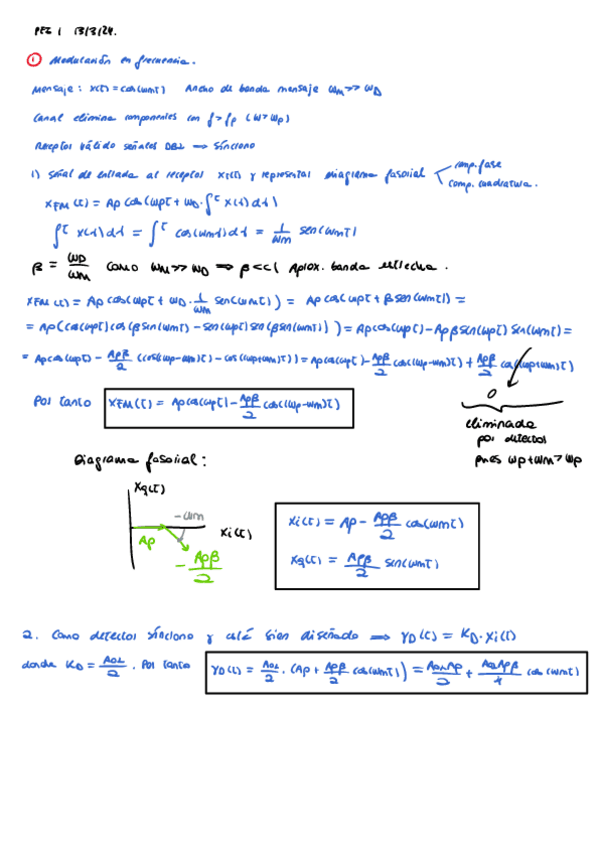 PEZ 1 13/3/24.
① Modulación en frecuencia.
Mensaje: x(t) = cos(ωmt) Ancho de banda mensaje ωm >> ωD
Canal elimina componentes con f > fp (ω > ωp)
Receptor válido señales DBL → síncrono
1) Señal de entrada al receptor xc(t) y representar diagrama fasorial comp. fase
comp. cuadratura.
xFM(t) = Ap cos(ωpt + ωD·∫ᵗ x(λ)dλ)
∫ᵗ x(λ)dλ = ∫ᵗ cos(ωmλ)dλ = 1/ωm sen(ωmt)
β = ωD/ωm como ωm >> ωD ⇒ β << 1 Aprox. banda estrecha.
xFM(t) = Ap cos(ωpt + ωD · 1/ωm sen(ωmt)) = Ap cos(ωpt + β sen(ωmt)) =
= Ap(cos(ωpt) cos(β sen(ωmt)) - sen(ωpt) sen(β sen(ωmt))) = Ap cos(ωpt) - Apβ sen(ωpt) sen(ωmt) =
= Ap cos(ωpt) - Apβ/2 (cos((ωp-ωm)t) - cos((ωp+ωm)t)) = Ap cos(ωpt) - Apβ/2 cos((ωp-ωm)t) + Apβ/2 cos((ωp+ωm)t)
0
Por tanto xFM(t) = Ap cos(ωpt) - Apβ/2 cos((ωp-ωm)t)
eliminada
por detector
pues ωp+ωm > ωp
Diagrama fasorial:
xq(t)
-ωm
xi(t)
Ap
- Apβ/2
xi(t) = Ap - Apβ/2 cos(ωmt)
xq(t) = Apβ/2 sen(ωmt)
2. Como detector síncrono y está bien diseñado ⇒ yD(t) = KD · xi(t)
donde KD = AOL/2 . Por tanto yD(t) = AOL/2 · (Ap + Apβ/2 cos(ωmt)) = AOLAp/2 + AOLApβ/4 cos(ωmt)